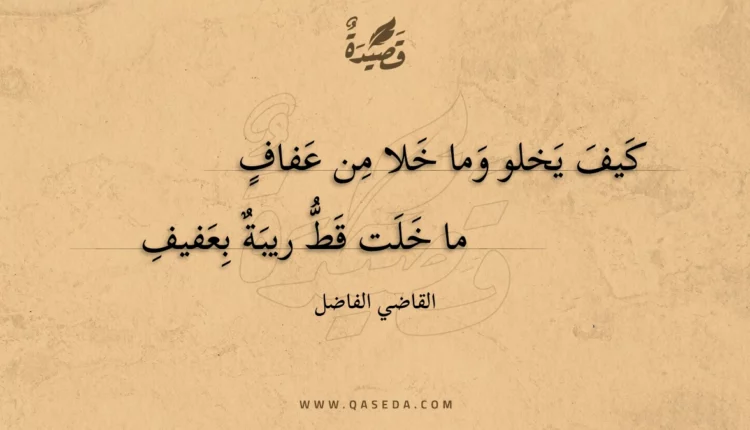 قَصِيدَةٌ
كَيفَ يَخلو وَما خَلا مِن عَفافٍ
ما خَلَت قَطُّ ريبَةٌ بِعَفيفِ
القاضي الفاضل
WWW.QASEDA.COM